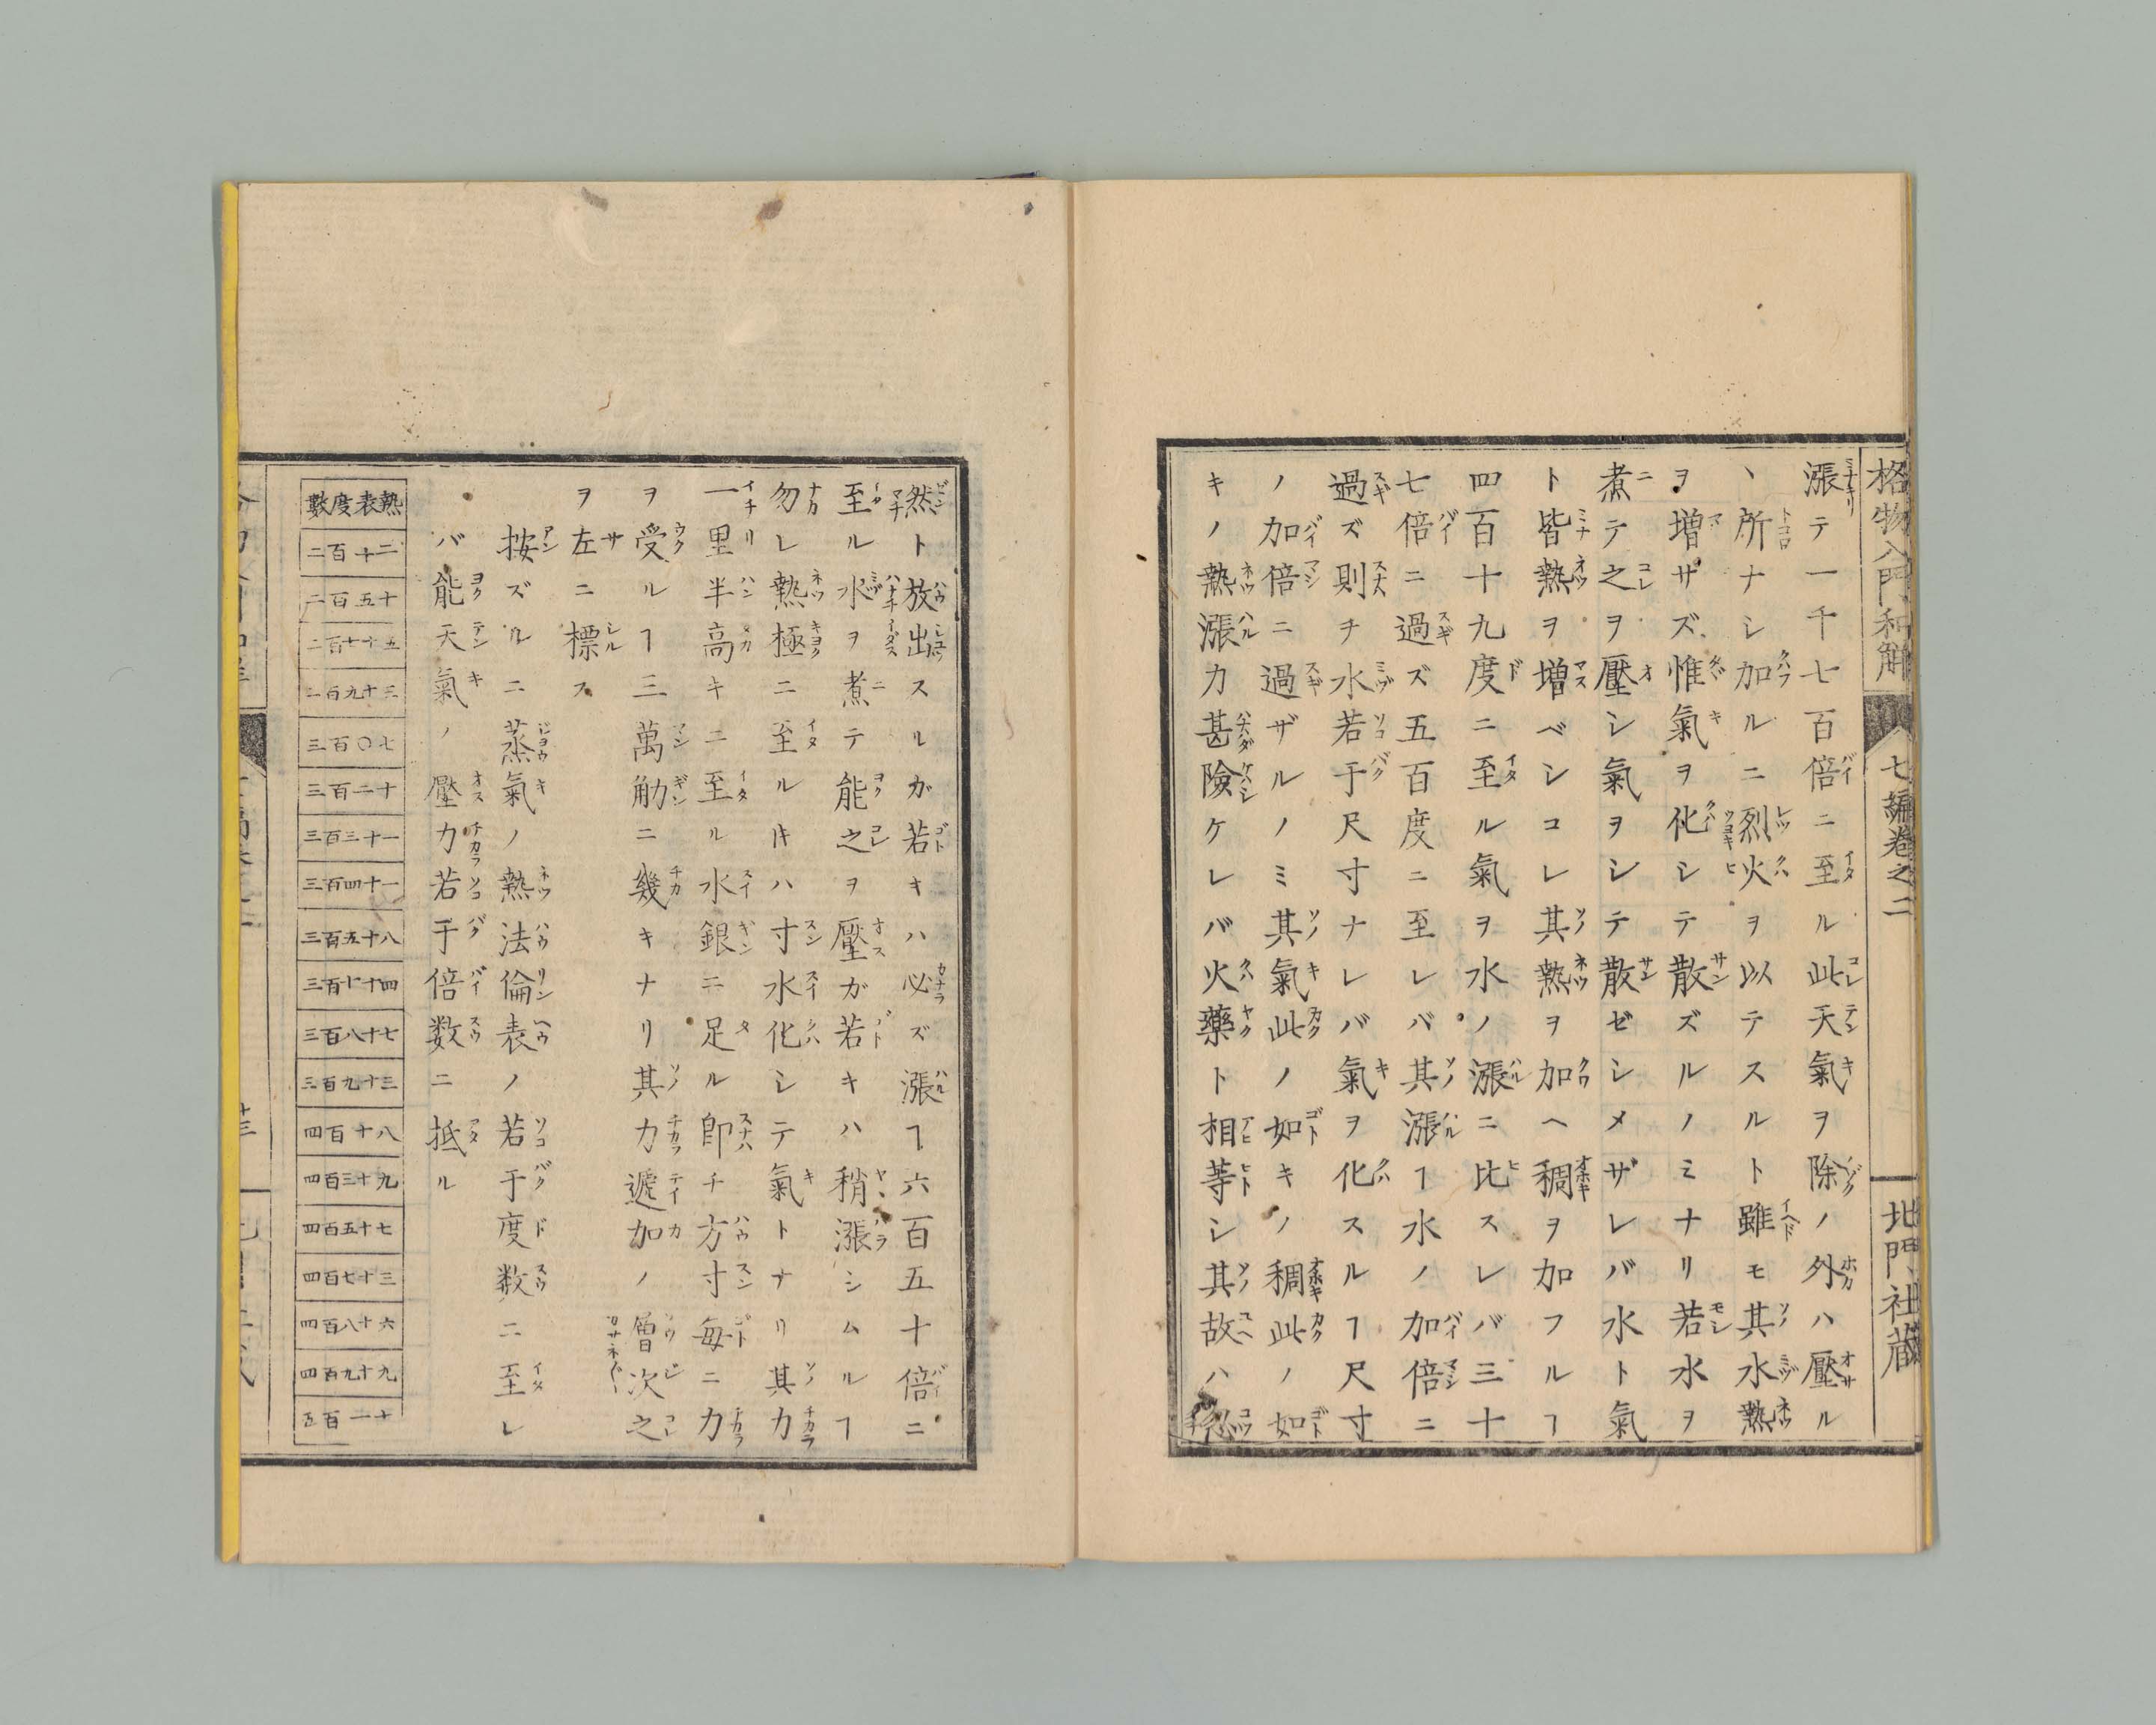 格物入門和解
七編卷之二
北門社蔵
漲テ一千七百倍ニ至ル此天氣ヲ除ノ外ハ壓ル
ヽ所ナシ加ルニ烈火ヲ以テスルト雖モ其水熱
ヲ增サズ惟氣ヲ化シテ散ズルノミナリ若水ヲ
煮テ之ヲ壓シ氣ヲシテ散ゼシメザレバ水ト氣
ト皆熱ヲ增ベシコレ其熱ヲ加ヘ稠ヲ加フルヿ
四百十九度ニ至ル氣ヲ水ノ漲ニ比スレバ三十
七倍ニ過ズ五百度ニ至レバ其漲ヿ水ノ加倍ニ
過ズ則チ水若干尺寸ナレバ氣ヲ化スルヿ尺寸
ノ加倍ニ過ザルノミ其氣此ノ如キノ稠此ノ如
キノ熱漲力甚險ケレバ火藥ト相等シ其故ハ
然ト放出スルガ若キハ必ズ漲ヿ六百五十倍ニ
至ル水ヲ煮テ能之ヲ壓ガ若キハ稍漲シムルヿ
勿レ熱極ニ至ルキハ寸水化シテ氣トナリ其力
一里半高キニ至ル水銀ニ足ル即チ方寸每ニ力
ヲ受ルヿ三萬觔ニ幾キナリ其力遞加ノ層次之
ヲ左ニ標ス
按ズルニ蒸氣ノ熱法倫表ノ若干度数ニ至レ
バ能天氣ノ壓力若干倍数ニ抵ル
熱表度數
二百十二
二百五十
二百七十五
二百九十三
三百〇七
三百二十
三百三十一
三百四十一
三百五十八
三百七十四
三百八十七
三百九十三
四百十八
四百三十九
四百五十七
四百七十三
四百八十六
四百九十九
五百一十